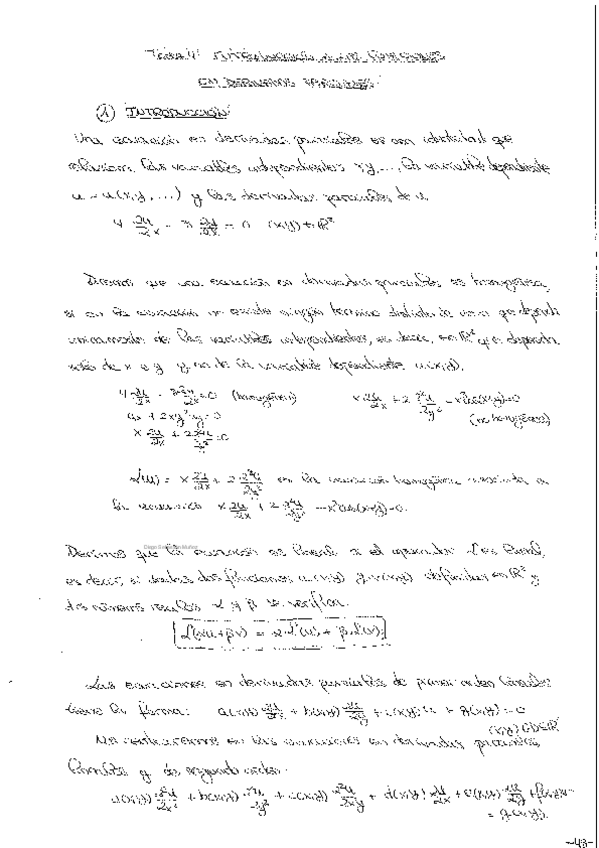 Tema 4: Introducción a las ecuaciones
en derivadas parciales.
① INTRODUCCIÓN
Una ecuación en derivadas parciales es una identidad que
relaciona las variables independientes x, y, ..., la variable dependiente
u = u(x, y, ...) y las derivadas parciales de u.
4 ∂u/∂x - 3 ∂u/∂x = 0 (x,y) ∈ ℝ²
Diremos que una ecuación en derivadas parciales es homogénea,
si en la ecuación no existe ningún término distinto de cero que dependa
únicamente de las variables independientes, es decir, en ℝ² que dependa
sólo de x e y y no de la variable dependiente u(x,y).
4 ∂u/∂x - 3 ∂u/∂x = 0 (homogénea)
x ∂u/∂x + 2 ∂²u/∂y² - x² (x+y) = 0
(no homogénea)
x ∂u/∂x + 2 ∂²u/∂y² = 0
L(u) = x ∂u/∂x + 2 ∂²u/∂y² es la ecuación homogénea asociada a
la ecuación x ∂u/∂x + 2 ∂²u/∂y² - x² (x+y) = 0.
Decimos que la ecuación es lineal si el operador L es lineal,
es decir, si dadas dos funciones u(x,y) y v(x,y) definidas en ℝ² y
dos números reales α y β se verifica.
L(αu + βv) = α L(u) + β L(v)
Las ecuaciones en derivadas parciales de primer orden lineales
tiene la forma: a(x,y) ∂u/∂x + b(x,y) ∂u/∂y + c(x,y) u + g(x,y) = 0
(x,y) ∈ D ⊂ ℝ²
Nos centraremos en las ecuaciones en derivadas parciales
lineales y de segundo orden.
a(x,y) ∂²u/∂x² + b(x,y) ∂²u/∂y² + c(x,y) ∂²u/∂x∂y + d(x,y) ∂u/∂x + e(x,y) ∂u/∂y + f(x,y)u
= g(x,y).
-43-